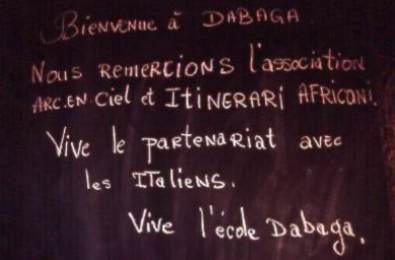 Bienvenue à DABAGA
Nous REMERCIONS l'association
ARC.EN.Ciel et ITINERARI AFRICANI.
Vive le partenariat avec
les ITaliens.
Vive l'école Dabaga.